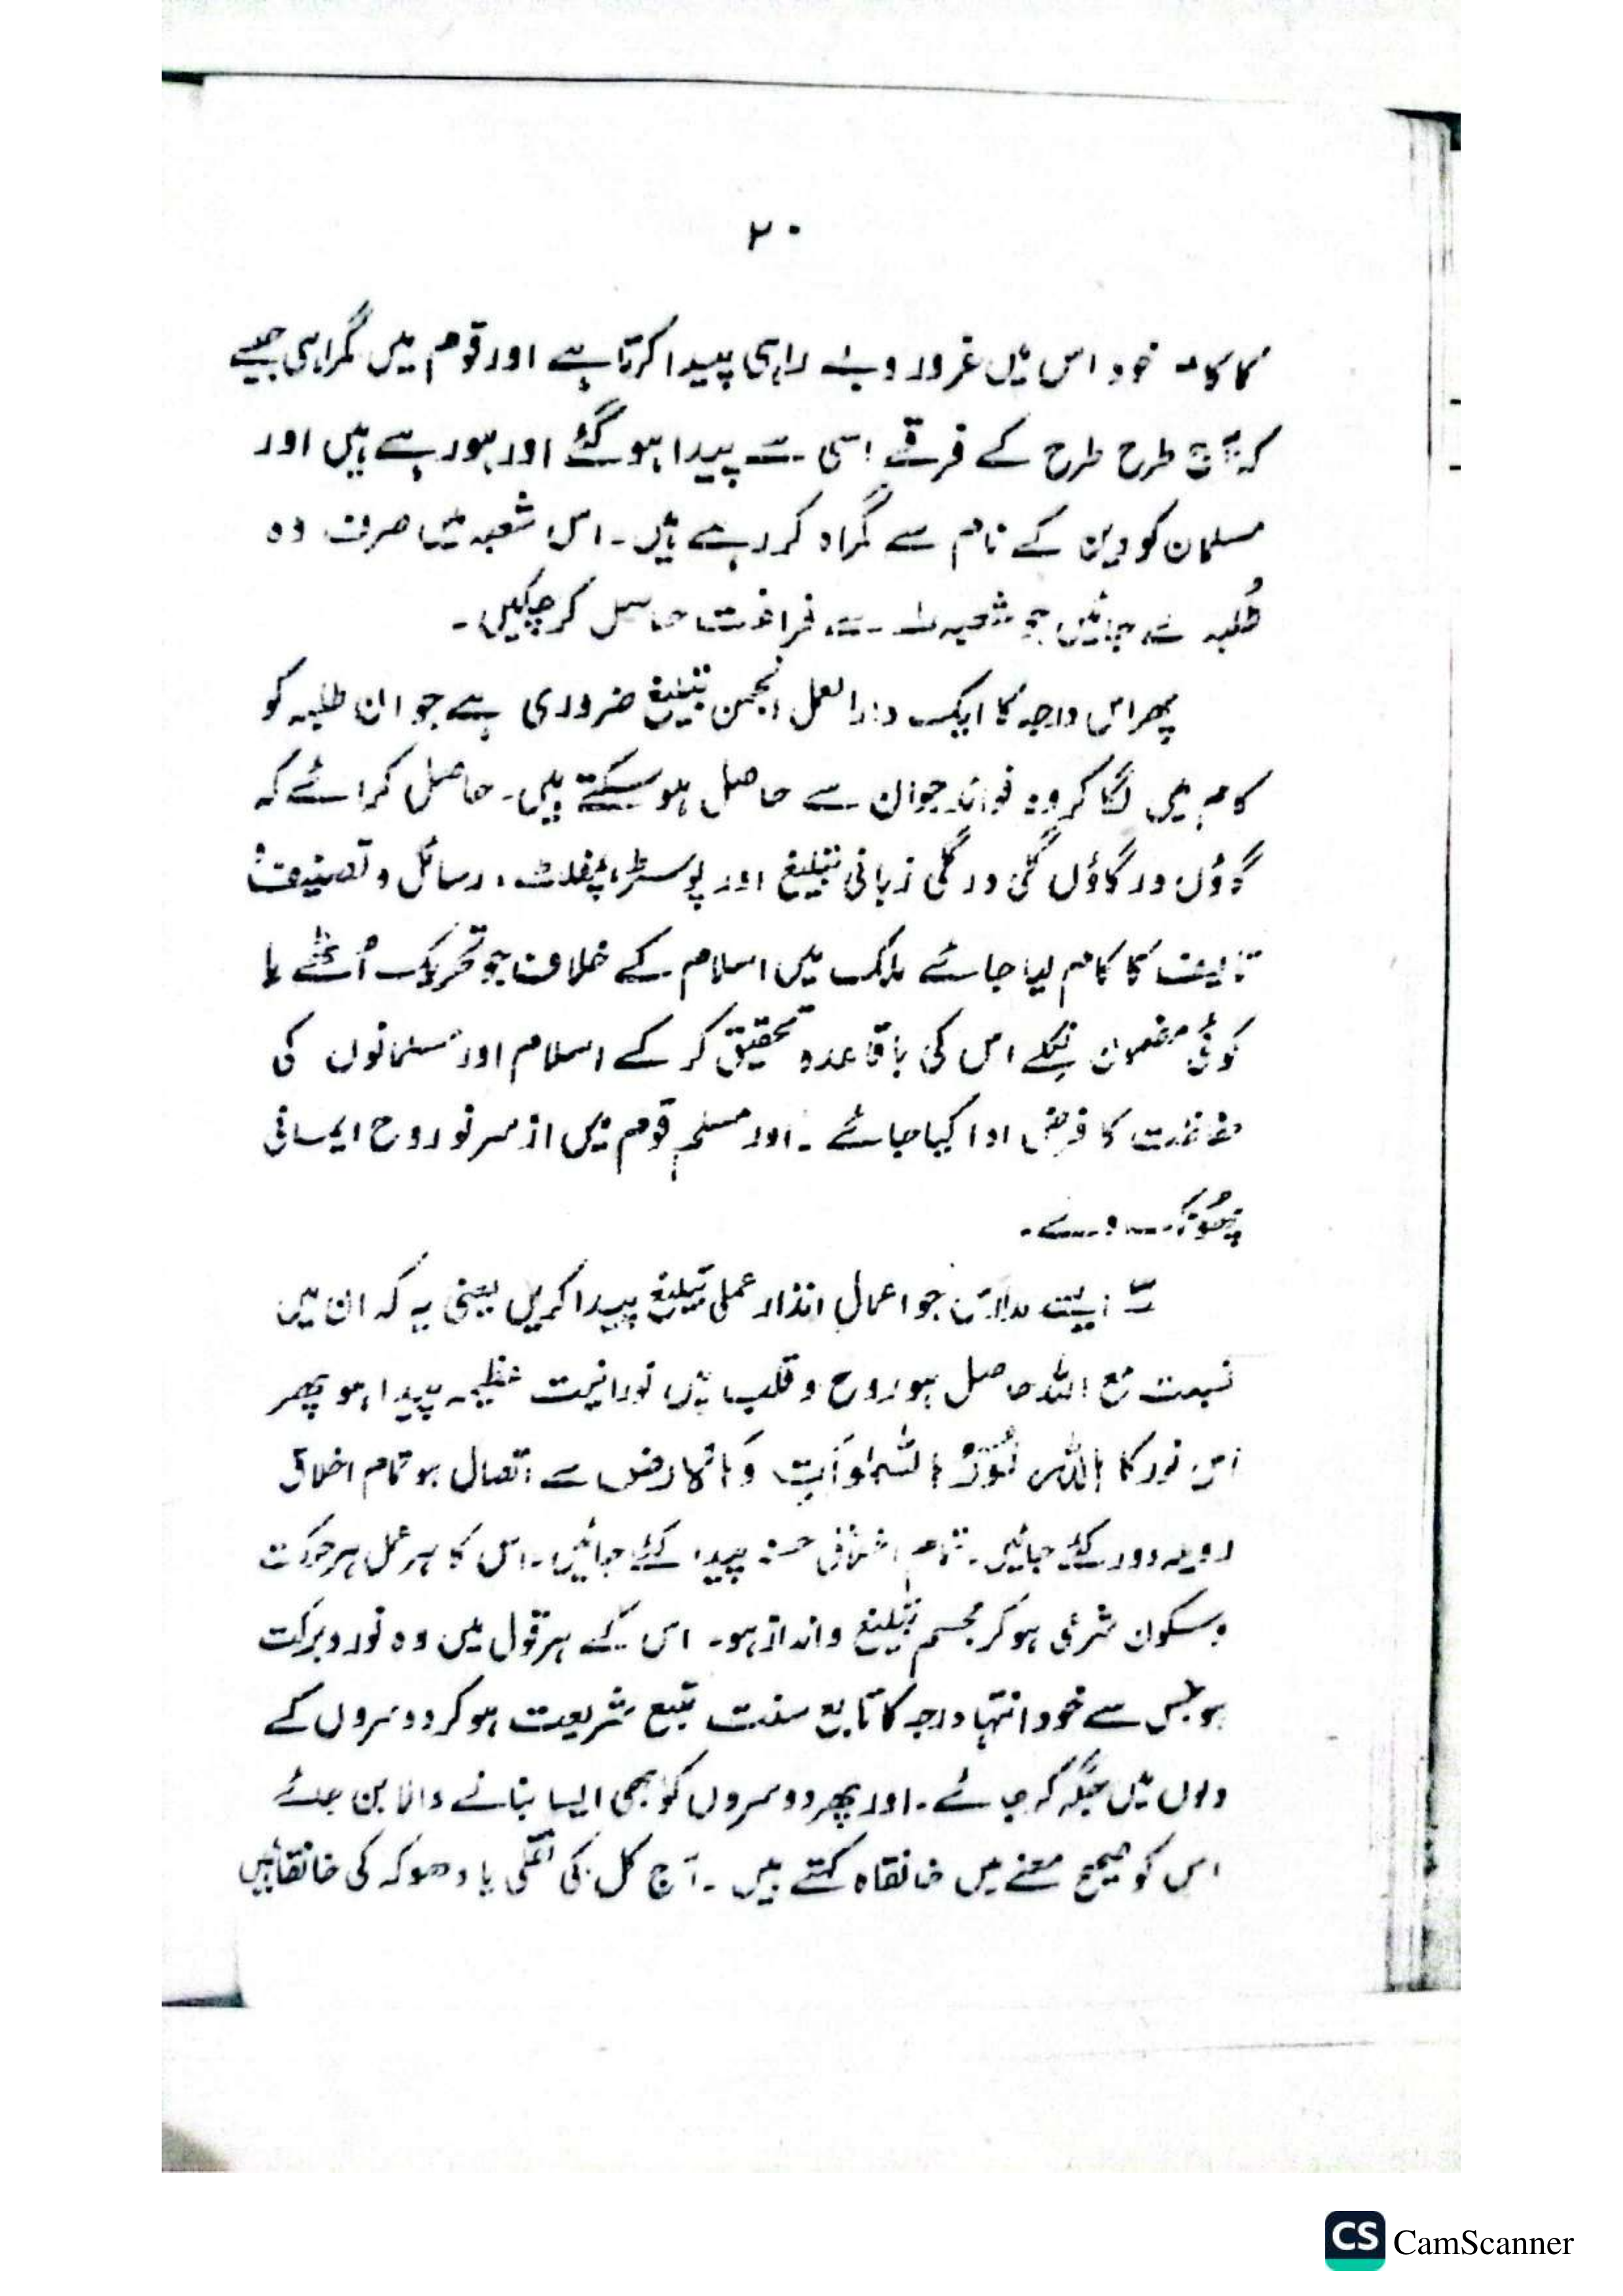 ۲۰
خود اس میں غرور و بے راہی پیدا کرتا ہے اور قوم میں گمراہی جیسے
کہ آج طرح طرح کے فرقے اسی سے پیدا ہو گئے اور ہو رہے ہیں اور
مسلمان کو دین کے نام سے گمراہ کر رہے ہیں۔ اس شعبہ میں صرف وہ
طُلبہ لئے جائیں جو شعبہ سے فراغت حاصل کر چکیں۔
پھر اس درجہ کا ایک دار العمل انجمن تبلیغ ضروری ہے جو ان طلبہ کو
کام میں لگا کر وہ فوائد جو ان سے حاصل ہو سکتے ہیں۔ حاصل کرائے کہ
گاؤں در گاؤں گلی در گلی زبانی تبلیغ اور پوسٹر، پمفلٹ، رسائل و تصنیف
تالیف کا کام لیا جائے ملک میں اسلام کے خلاف جو تحریک اُٹھے یا
کوئی مضمون نکلے اس کی باقاعدہ تحقیق کر کے اسلام اور مسلمانوں کی
حفاظت کا فرض ادا کیا جائے۔ اور مسلم قوم میں از سر نو روح ایمانی
پھُونک دے۔
ایسے مدارس جو اعمال انذار عملی تبلیغ پیدا کریں یعنی یہ کہ ان میں
نسبت مع اللہ حاصل ہو روح و قلب میں نورانیت عظیمہ پیدا ہو پھر
اس نور کا اَللّٰہُ نُوْرُ السَّمٰوٰاتِ وَالْاَرض سے اتصال ہو تمام اخلاق
رویہ دور کئے جائیں۔ تمام اخلاق حسنہ پیدا کئے جائیں۔ اس کا ہر عمل ہر حرکت
و سکون شرعی ہو کر مجسم تبلیغ و انداز ہو۔ اس کے ہر قول میں وہ نور و برکت
ہو جس سے خود انتہا درجہ کا تابع سنت متبع شریعت ہو کر دوسروں کے
دلوں میں جگہ کر جائے۔ اور پھر دوسروں کو بھی ایسا بنانے والا بن جائے
اس کو صحیح معنے میں خانقاہ کہتے ہیں۔ آج کل کی یا دھوکہ کی خانقاہیں
CS CamScanner